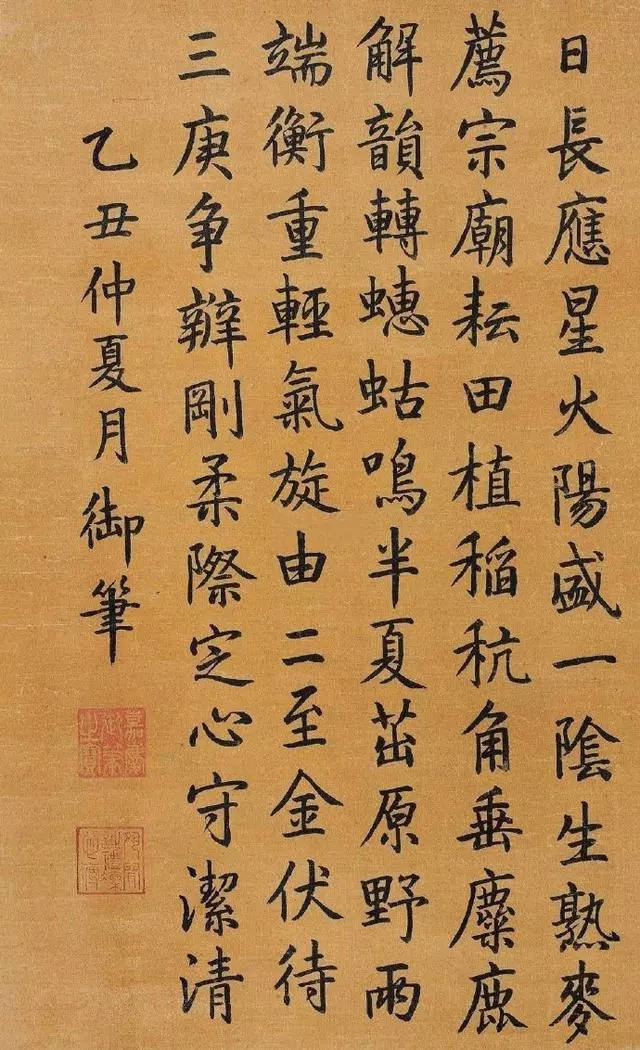 日長應星火陽盛一陰生熟麥
薦宗廟耘田植稻秔角垂麋鹿
解韻轉蟪蛄鳴半夏茁原野兩
端衡重輕氣旋由二至金伏待
三庚争辧剛柔際定心守潔清
乙丑仲夏月御筆
嘉慶御筆之寶